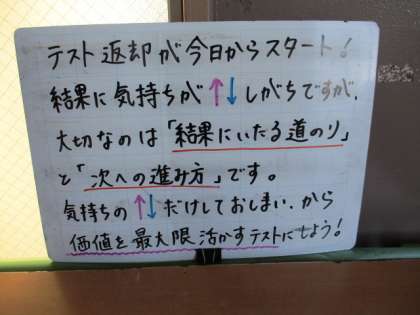 テスト返却が今日からスタート!
結果に気持ちが↑↓しがちですが、
大切なのは「結果にいたる道のり」
と「次への進み方」です。
気持ちの↑↓だけしておしまい、から
価値を最大限活かすテストにしよう!